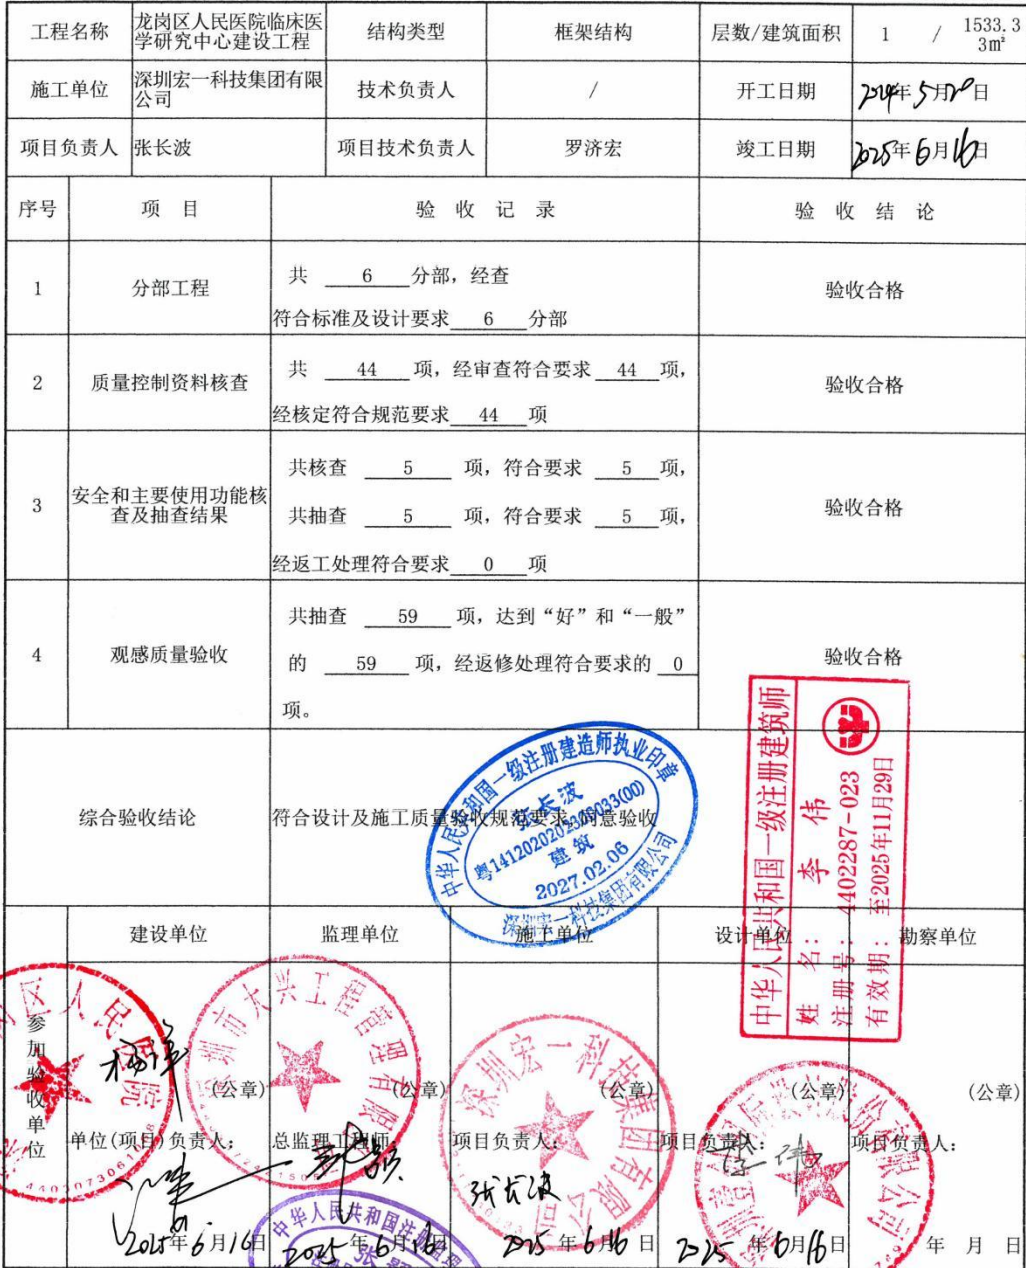 工程名称 龙岗区人民医院临床医学研究中心建设工程 结构类型 框架结构 层数/建筑面积 1 / 1533.33m²
施工单位 深圳宏一科技集团有限公司 技术负责人 / 开工日期 2024年5月28日
项目负责人 张长波 项目技术负责人 罗济宏 竣工日期 2025年6月16日
序号 项 目 验 收 记 录 验 收 结 论
1 分部工程 共 6 分部，经查
符合标准及设计要求 6 分部
验收合格
2 质量控制资料核查 共 44 项，经审查符合要求 44 项，
经核定符合规范要求 44 项
验收合格
3 安全和主要使用功能核查及抽查结果
共核查 5 项，符合要求 5 项，
共抽查 5 项，符合要求 5 项，
经返工处理符合要求 0 项
验收合格
4 观感质量验收
共抽查 59 项，达到“好”和“一般”
的 59 项，经返修处理符合要求的 0
项。
验收合格
综合验收结论 符合设计及施工质量验收规范要求，同意验收
中华人民共和国一级注册建造师执业印章
张长波
粤1412020202306033(00)
建筑
2027.02.06
深圳宏一科技集团有限公司
中华人民共和国一级注册建筑师
姓 名： 李 伟
注册号： 4402287-023
有效期： 至2025年11月29日
参加验收单位
建设单位 监理单位 施工单位 设计单位 勘察单位
区人民医院
深圳市大兴工程管理有限公司
深圳宏一科技集团有限公司
(公章) (公章) (公章) (公章)
单位(项目)负责人： 总监理工程师： 项目负责人： 项目负责人： 项目负责人：
张长波
李伟
2025年6月16日 2025年6月16日 2025年6月16日 2025年6月16日 年 月 日
中华人民共和国注册监理